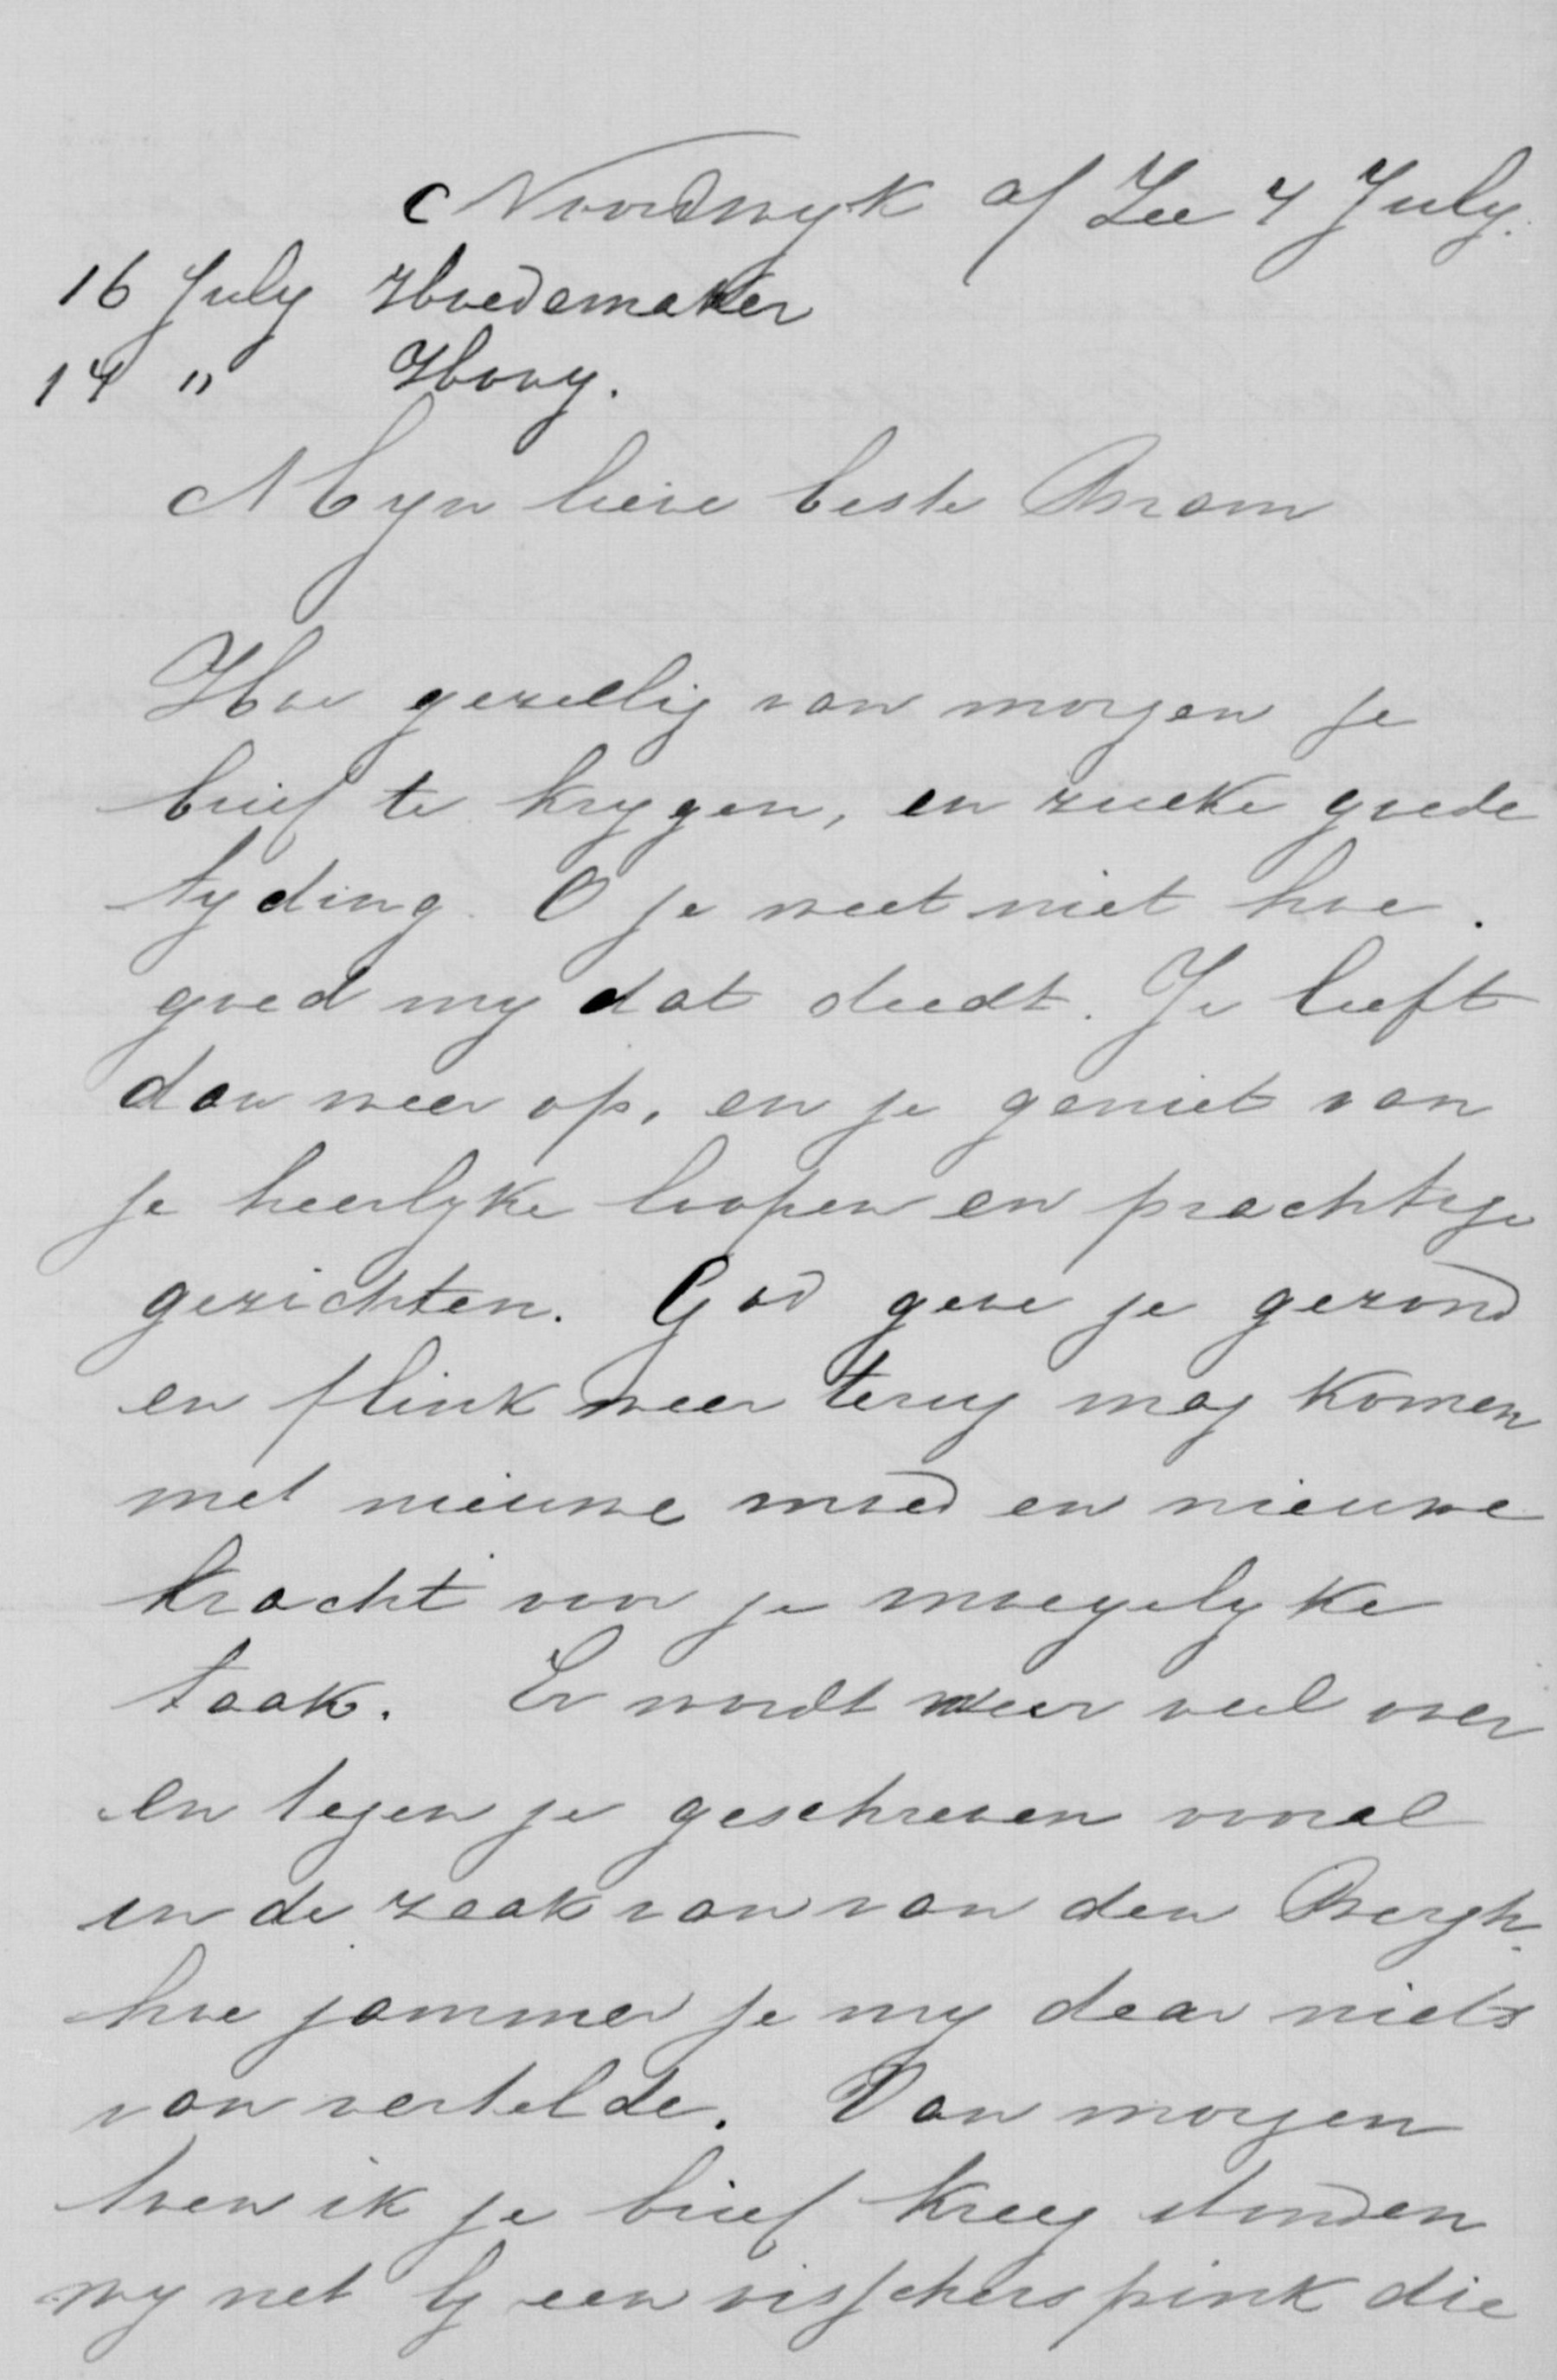 Noordwyk a/ Zee 4 July.
16 July Hoedemaker
14 " Hovy.
Myn lieve beste Bram
Hoe gezellig van morgen je
brief te krygen, en zulke goede
tyding. O je weet niet hoe
goed my dat deedt. Je leeft
dan weer op, en je geniet van
je heerlyke loopen en prachtige
gezichten. God geve je gezond
en flink weer terug mag komen
met nieuwe moed en nieuwe
kracht voor je moeyelyke
taak. Er wordt weer veel over
en tegen je geschreven vooral
in de zaak van van den Bergh
hoe jammer je my daar niets
van vertelde. Van morgen
toen ik je brief kreeg stonden
wy net by een visscherspink die